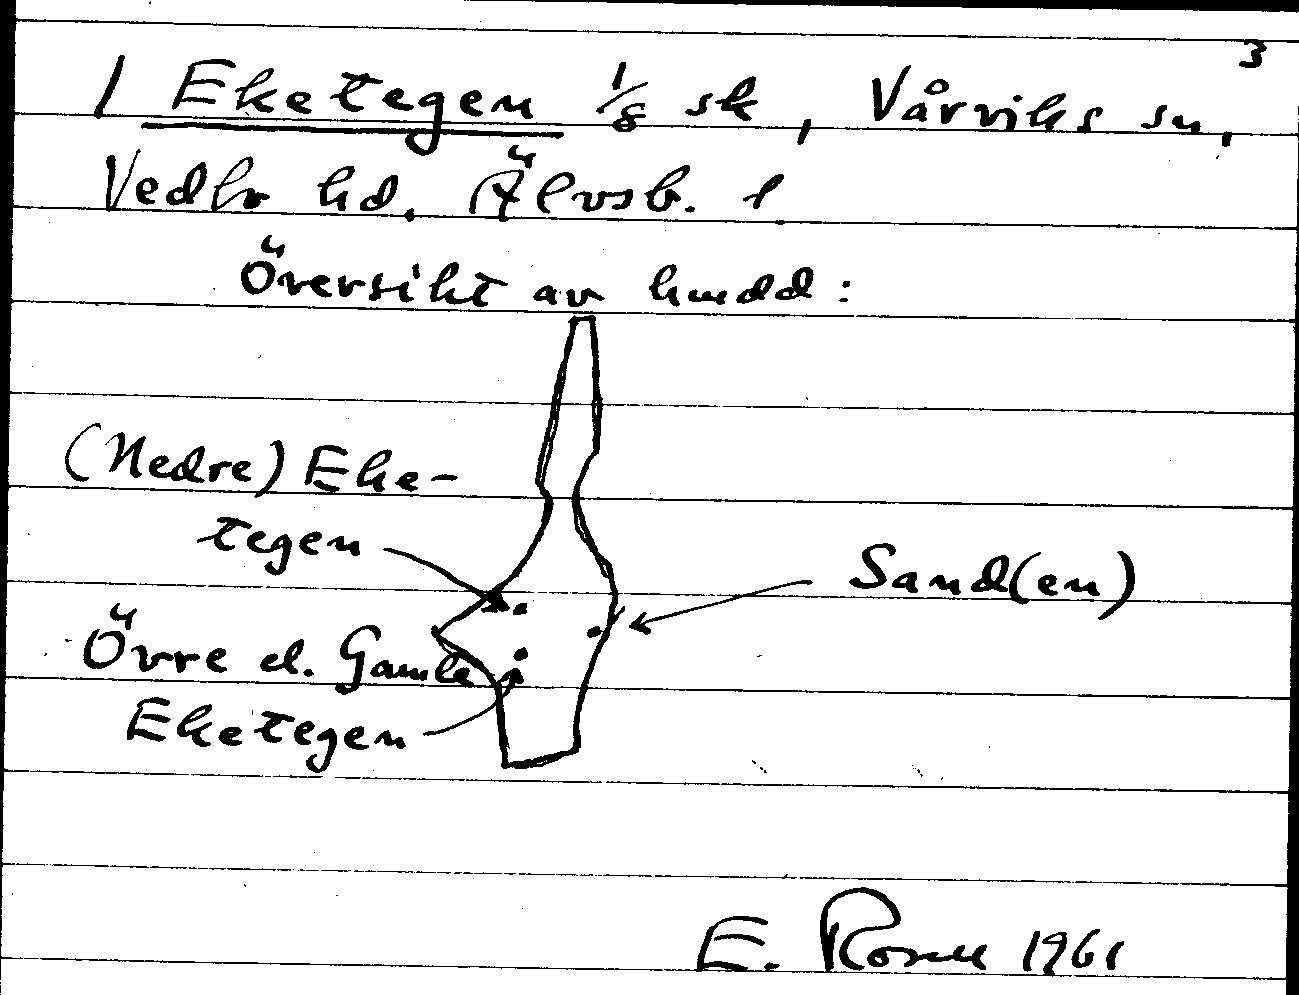 3
1 Eketegen 1/8 sk, Vårviks sn,
Vedbo hd. Älvsb. l
Översikt av hmdd:
(Nedre) Eke-
tegen
Sand(en)
Övre el. Gamle
Eketegen
E. Rosell 1961